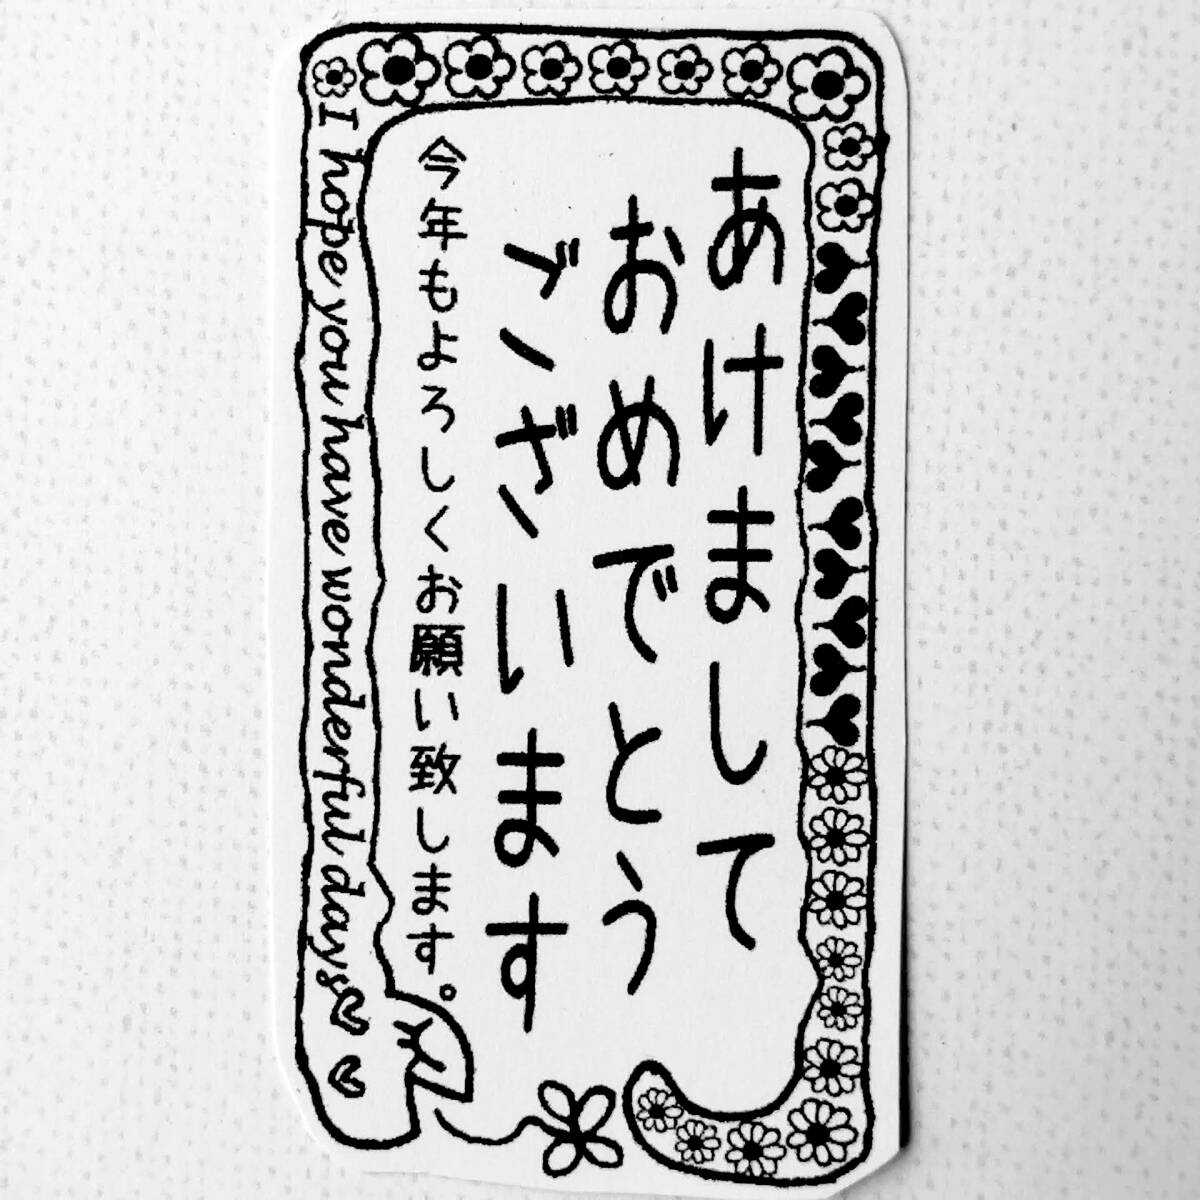 あけまして
おめでとう
ございます
今年もよろしくお願い致します。
I hope you have wonderful days